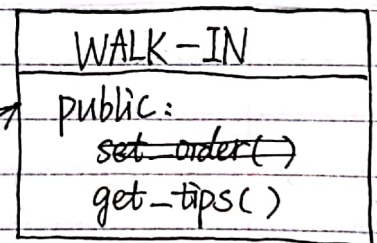 WALK-IN
public:
set_order()
get_tips()